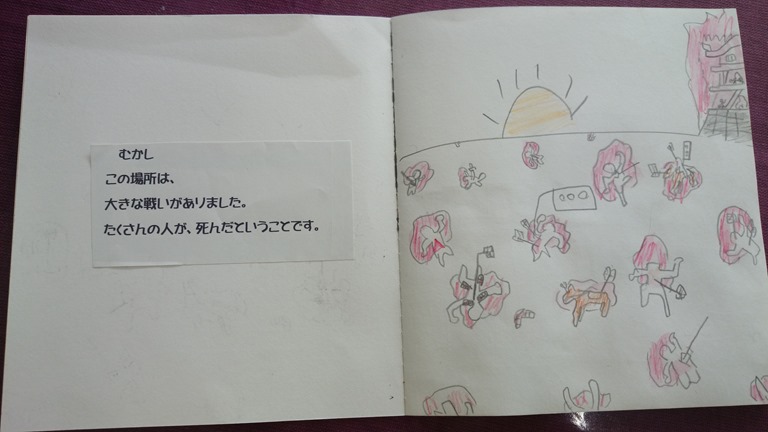 むかし
この場所は、
大きな戦いがありました。
たくさんの人が、死んだということです。